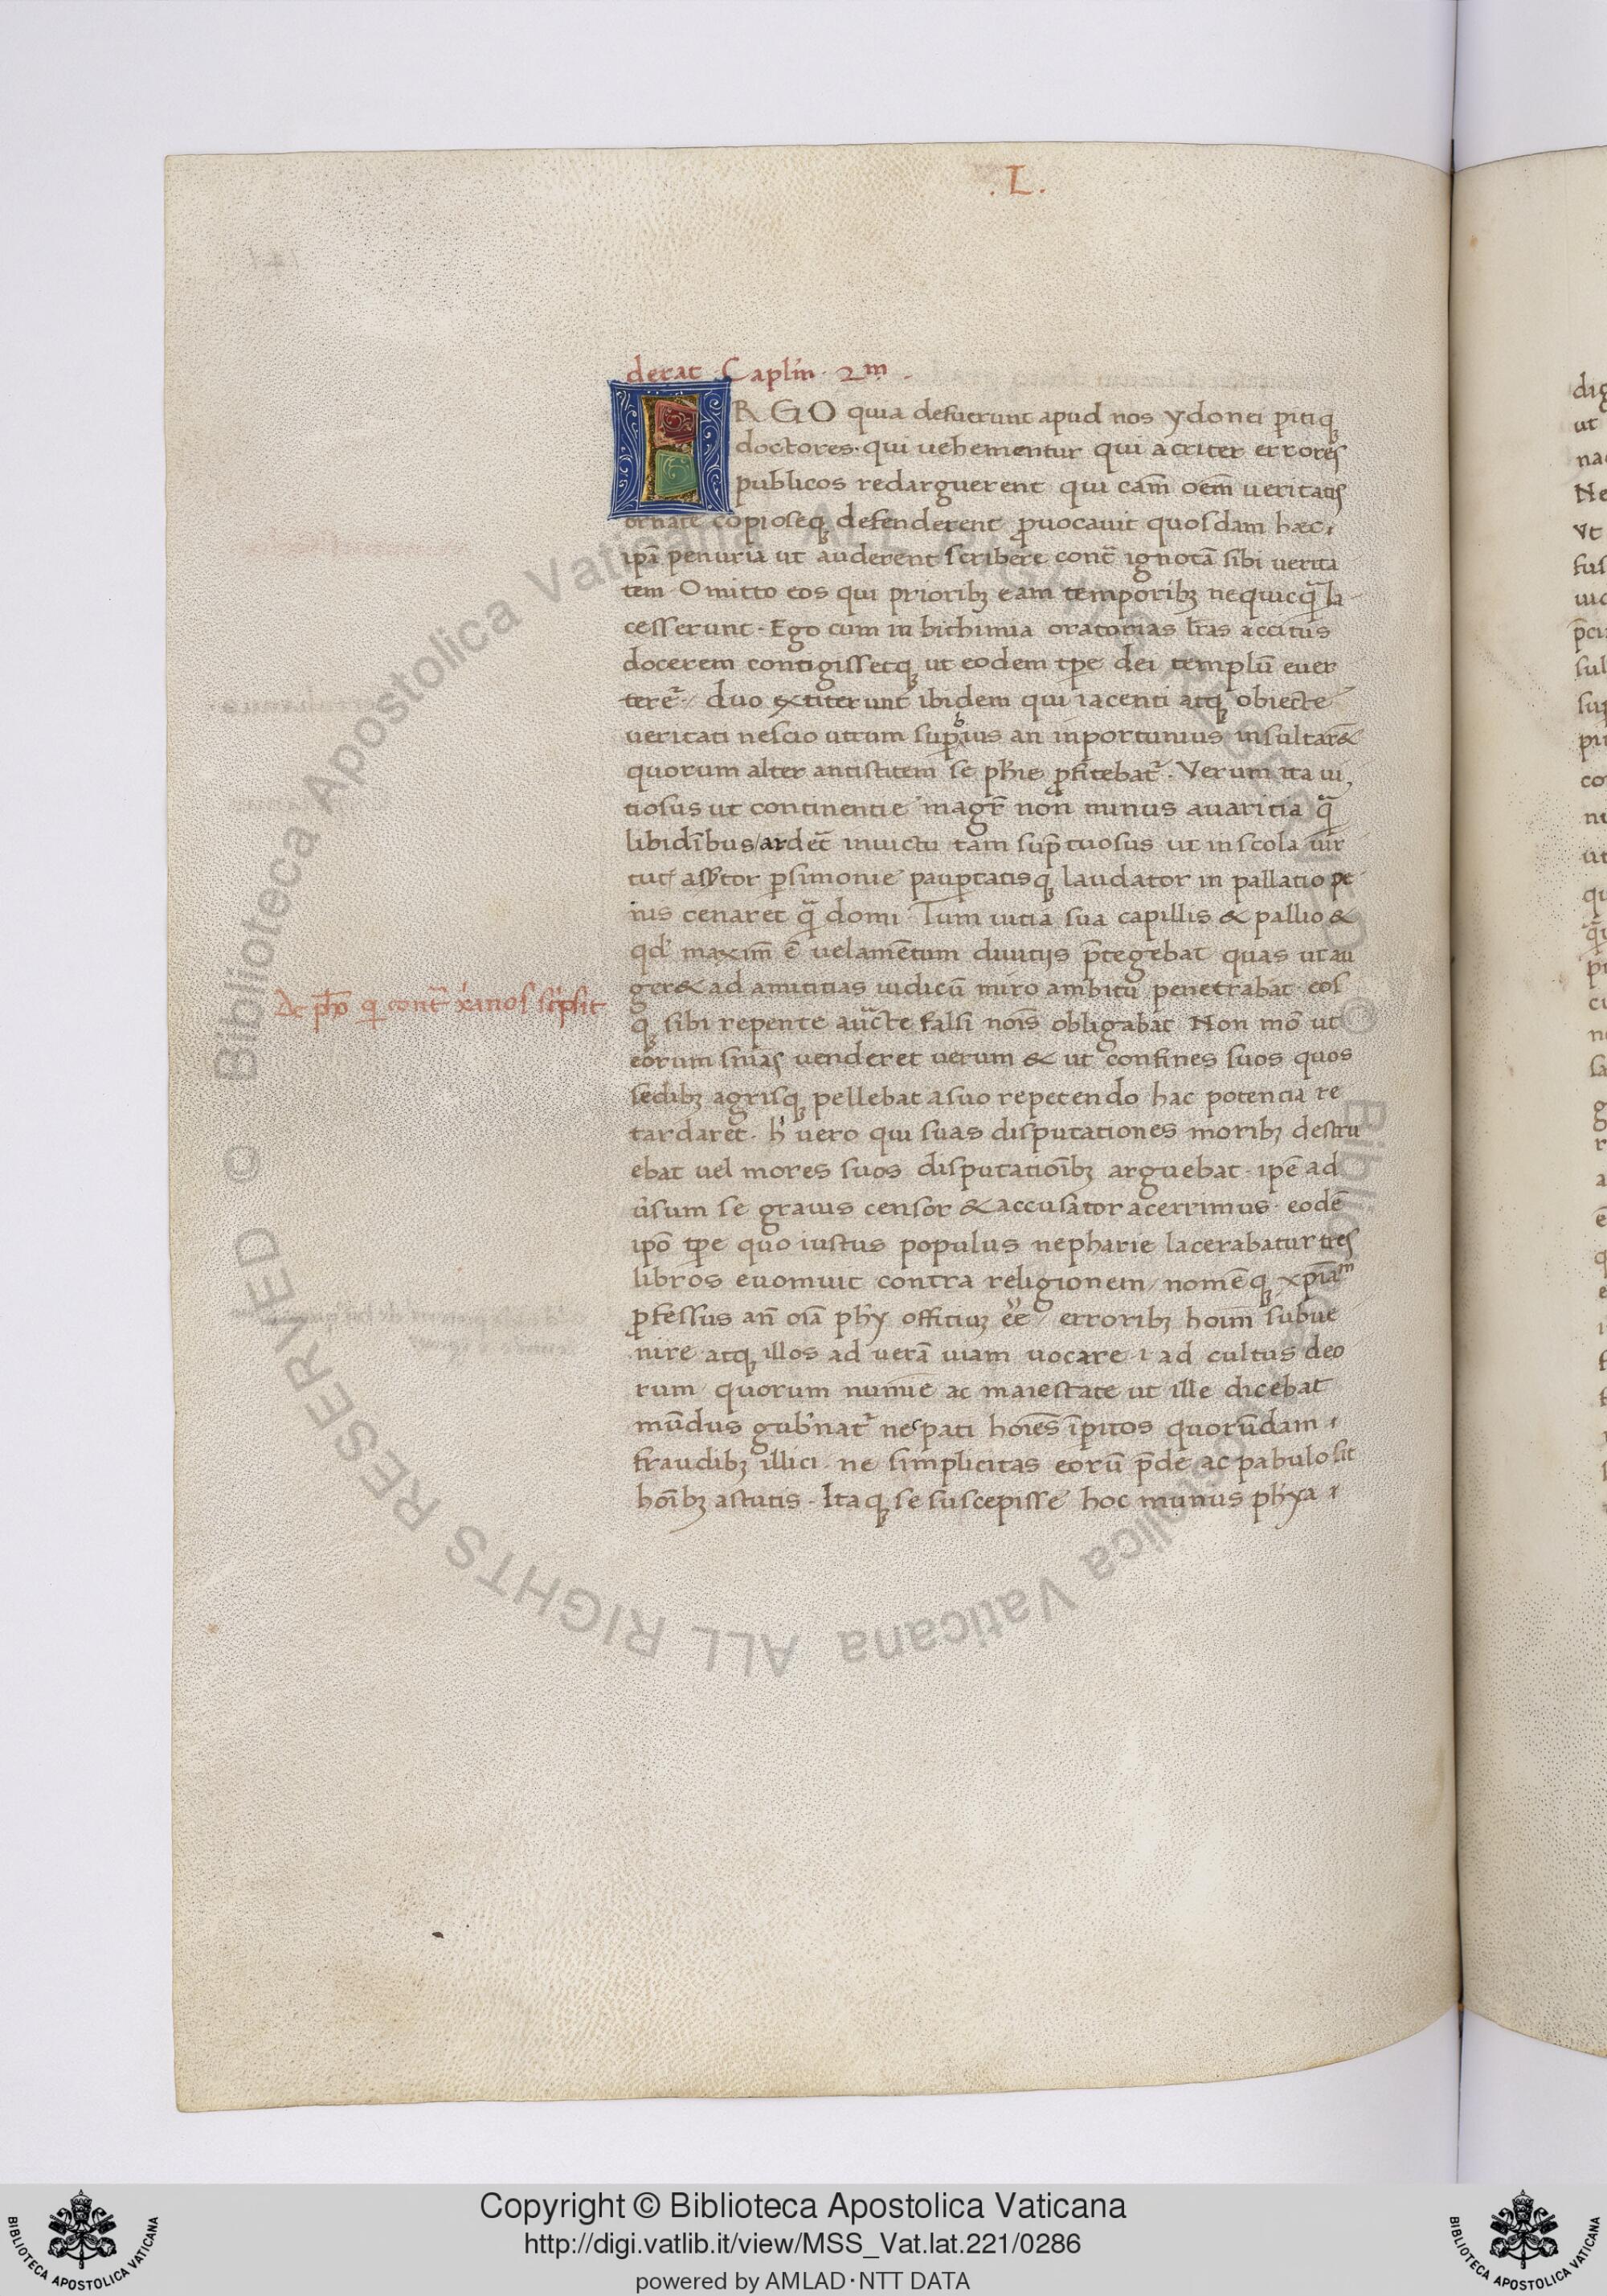 .L.
derat. Caplm̄. 2m̄.
ERGO quia defuerunt apud nos ydonei p̲itiqꝫ
doctores. qui uehementur qui acriter errores
publicos redarguerent qui cām oēm ueritatis
ornate copioseqꝫ defenderent ꝓuocauit quosdam hæc
ipā penuria ut auderent scribere cont̄ ignotā sibi uerita
tem. Omitto eos qui prioribꝫ eam temporibꝫ nequicq̄ la
cesserunt. Ego cum in bithimia oratorias lr̄as accitus
docerem contigissetqꝫ ut eodem tp̄e dei templū euer
teret̄ / duo extiterunt ibidem qui iacenti atqꝫ obiecte
ueritati nescio utrum suꝑbius an inportunius insultar&
quorum alter antistitem se ph̄ie ꝓfitebat̄. Verum ita ui,
tiosus ut continentie magr̄ non minus auaritia q̄
libidībus / ardet̄ inuictu tam sup̄tuosus ut in scola uir
tut aſſtor ꝑsimonie pauꝑtatisqꝫ laudator in pallatio pe
ius cenaret q̄ domi Tum uitia sua capillis & pallio &
qd' maxim̄ ē uelamētum diuitijs p̄tegebat quas ut au
ger& ad amititias iudicū miro ambitu penetrabat. eos
Ac ph̄o q cont̄ xīanos scīpsit
qꝫ sibi repente auc̄te falsi nōis obligabat Non mō ut
eorum snīas uenderet uerum & ut confines suos quos
sedibꝫ agrisqꝫ pellebat a suo repetendo hac potencia re
tardaret. h' uero qui suas disputationes moribꝫ destru
ebat uel mores suos disputatiōibꝫ arguebat. ip̄e ad
ūsum se grauis censor & accusator acerrimus. eodē
ip̄o tp̄e quo iustus populus nepharie lacerabatur tres
libros euomuit contra religionem / nomēqꝫ xp̄iam
ꝓfessus an̄ oīa ph̄y offitiuꝫ eē / erroribꝫ hoīm subue
nire atqꝫ illos ad uerā uiam uocare. i ad cultus deo
rum quorum numīe ac maiestate ut ille dicebat
mūdus gub'nat̄ nec pati hoīes īp̲itos quorūdam
fraudibꝫ illici. ne simplicitas eorū p̄de ac pabulo sit
hoībꝫ astutis. Itaqꝫ se suscepisse hoc munus ph̄ya
© Biblioteca Apostolica Vaticana ALL RIGHTS RESERVED
© Biblioteca Apostolica Vaticana ALL RIGHTS RESERVED
BIBLIOTECA APOSTOLICA VATICANA
Copyright © Biblioteca Apostolica Vaticana
http://digi.vatlib.it/view/MSS_Vat.lat.221/0286
powered by AMLAD·NTT DATA
BIBLIOTECA APOSTOLICA VATICANA